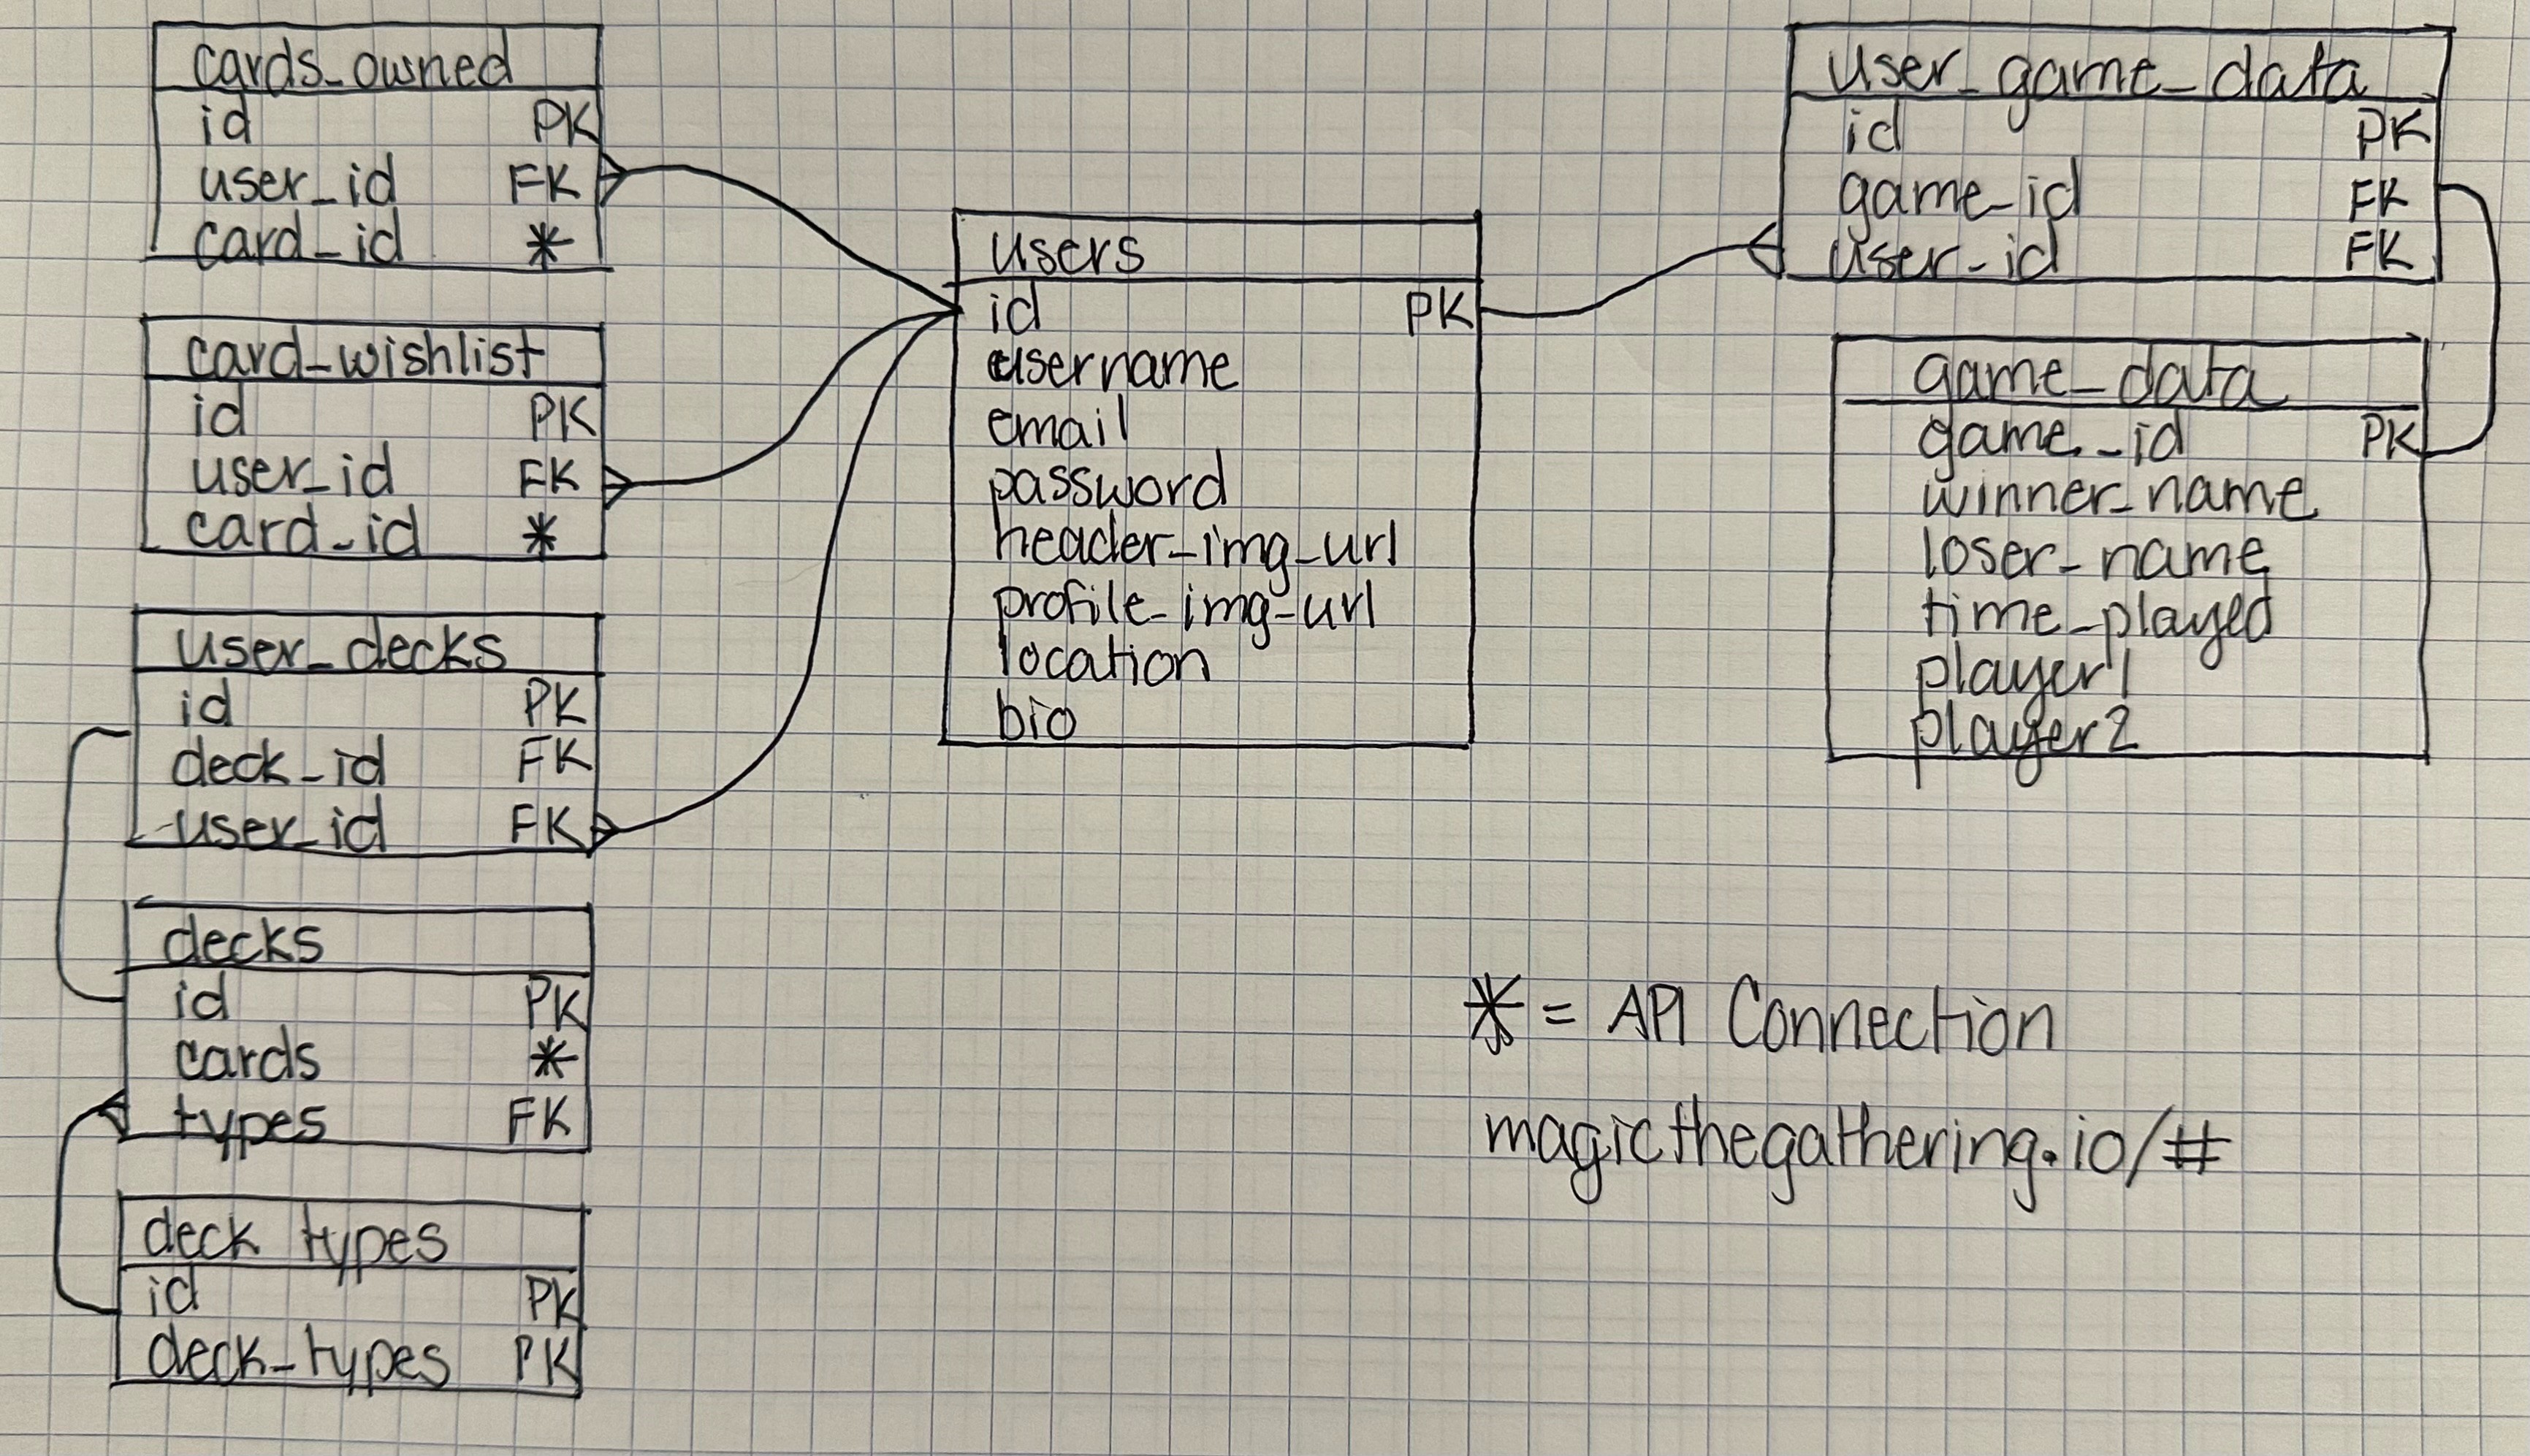 cards_owned
id PK
user_id FK
card_id *
card_wishlist
id PK
user_id FK
card_id *
user_decks
id PK
deck_id FK
user_id FK
decks
id PK
cards *
types FK
deck types
id PK
deck_types PK
users
id PK
username
email
password
header_img_url
profile_img_url
location
bio
user_game_data
id PK
game_id FK
user_id FK
game_data
game_id PK
winner_name
loser_name
time_played
player1
player2
* = API Connection
magicthegathering.io/#